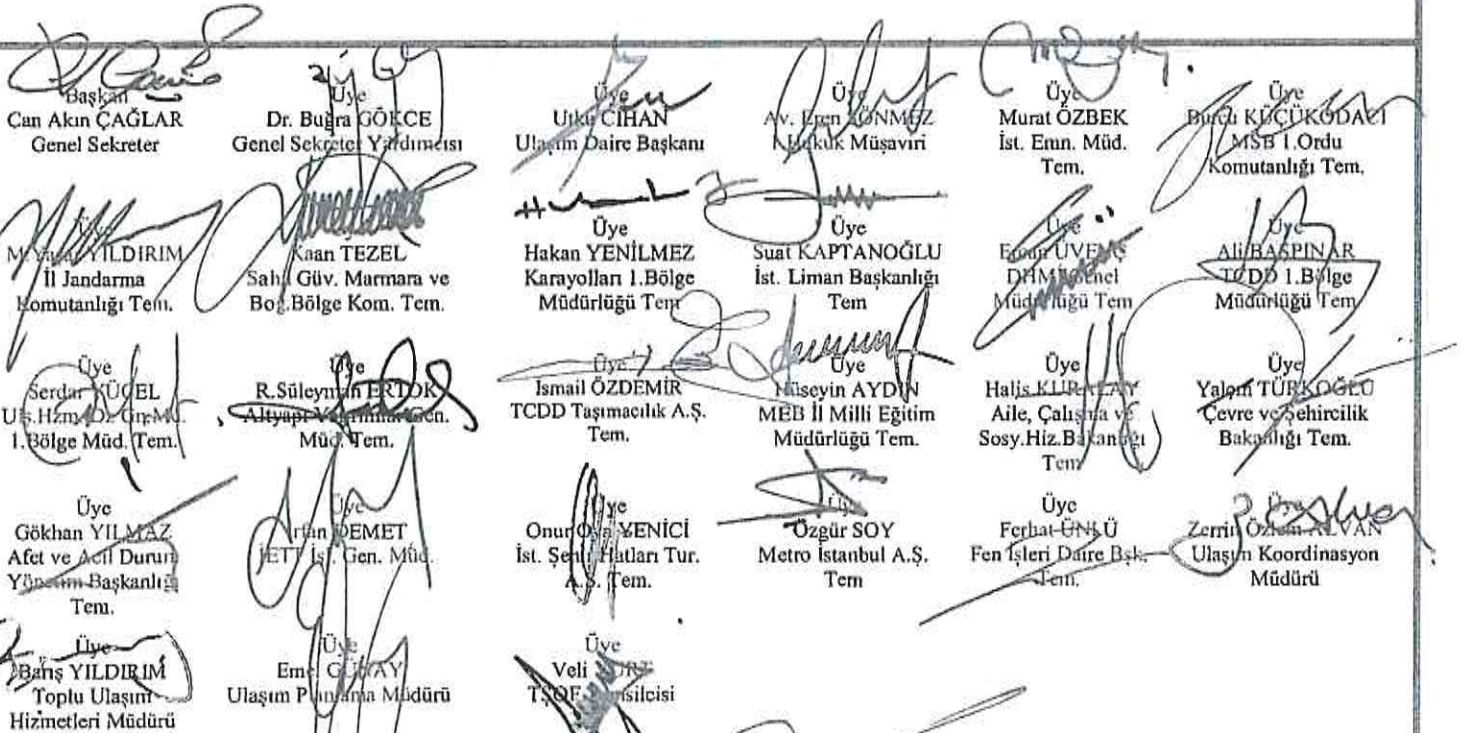 Başkan
Can Akın ÇAĞLAR
Genel Sekreter
Üye
Dr. Buğra GÖKCE
Genel Sekreter Yardımcısı
Üye
Utku CİHAN
Ulaşım Daire Başkanı
Üye
Av. Eren SÖNMEZ
Hukuk Müşaviri
Üye
Murat ÖZBEK
İst. Emn. Müd.
Tem.
Üye
Burcu KÜÇÜKODACI
MSB 1.Ordu
Komutanlığı Tem.
Üye
YILDIRIM
İl Jandarma
Komutanlığı Tem.
Kaan TEZEL
Sahil Güv. Marmara ve
Boğ.Bölge Kom. Tem.
Üye
Hakan YENİLMEZ
Karayolları 1.Bölge
Müdürlüğü Tem
Üye
Suat KAPTANOĞLU
İst. Liman Başkanlığı
Tem
Üye
DHMİ Genel
Müdürlüğü Tem
Üye
Ali BAŞPINAR
TCDD 1.Bölge
Müdürlüğü Tem
Üye
Serdar YÜCEL
1.Bölge Müd. Tem.
Üye
R.Süleyman ERTOK
Altyapı Gen.
Müd. Tem.
Üye
İsmail ÖZDEMİR
TCDD Taşımacılık A.Ş.
Tem.
Üye
Hüseyin AYDIN
MEB İl Milli Eğitim
Müdürlüğü Tem.
Üye
Halis
Aile, Çalışma ve
Sosy.Hiz.Bakanlığı
Tem
Üye
Yalçın TÜRKOĞLU
Çevre ve Şehircilik
Bakanlığı Tem.
Üye
Gökhan YILMAZ
Afet ve Acil Durum
Yönetim Başkanlığı
Tem.
Üye
DEMET
İETT İşl. Gen. Müd.
Üye
Onur YENİCİ
İst. Şehir Hatları Tur.
A.Ş. Tem.
Üye
Özgür SOY
Metro İstanbul A.Ş.
Tem
Üye
Ferhat ÜNLÜ
Fen İşleri Daire Bşk.
Tem.
Üye
Zerrin Özlem ALVAN
Ulaşım Koordinasyon
Müdürü
Üye
Barış YILDIRIM
Toplu Ulaşım
Hizmetleri Müdürü
Üye
Emel
Ulaşım Planlama Müdürü
Üye
Veli
TŞOF Temsilcisi